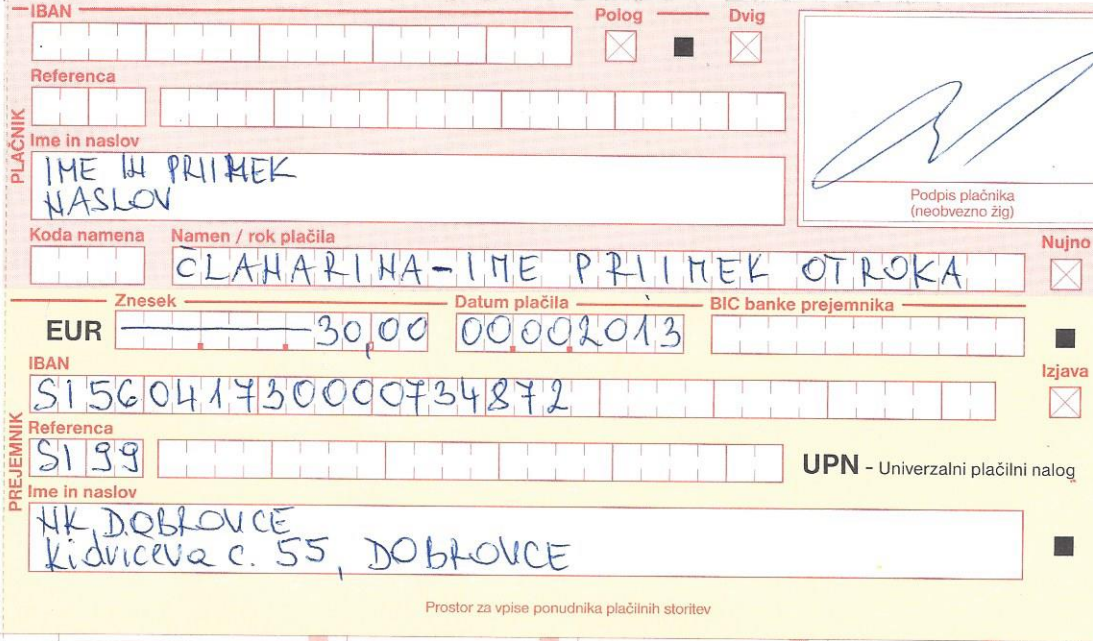 IBAN
Polog
Dvig
Referenca
PLAČNIK
Ime in naslov
IME IN PRIIMEK
NASLOV
Podpis plačnika
(neobvezno žig)
Koda namena
Namen / rok plačila
Nujno
ČLANARINA-IME PRIIMEK OTROKA
Znesek
Datum plačila
BIC banke prejemnika
EUR
30,00
00002013
IBAN
Izjava
SI56041730000734872
PREJEMNIK
Referenca
SI99
UPN - Univerzalni plačilni nalog
Ime in naslov
NK DOBROVCE
Kidviceva c. 55, DOBROVCE
Prostor za vpise ponudnika plačilnih storitev